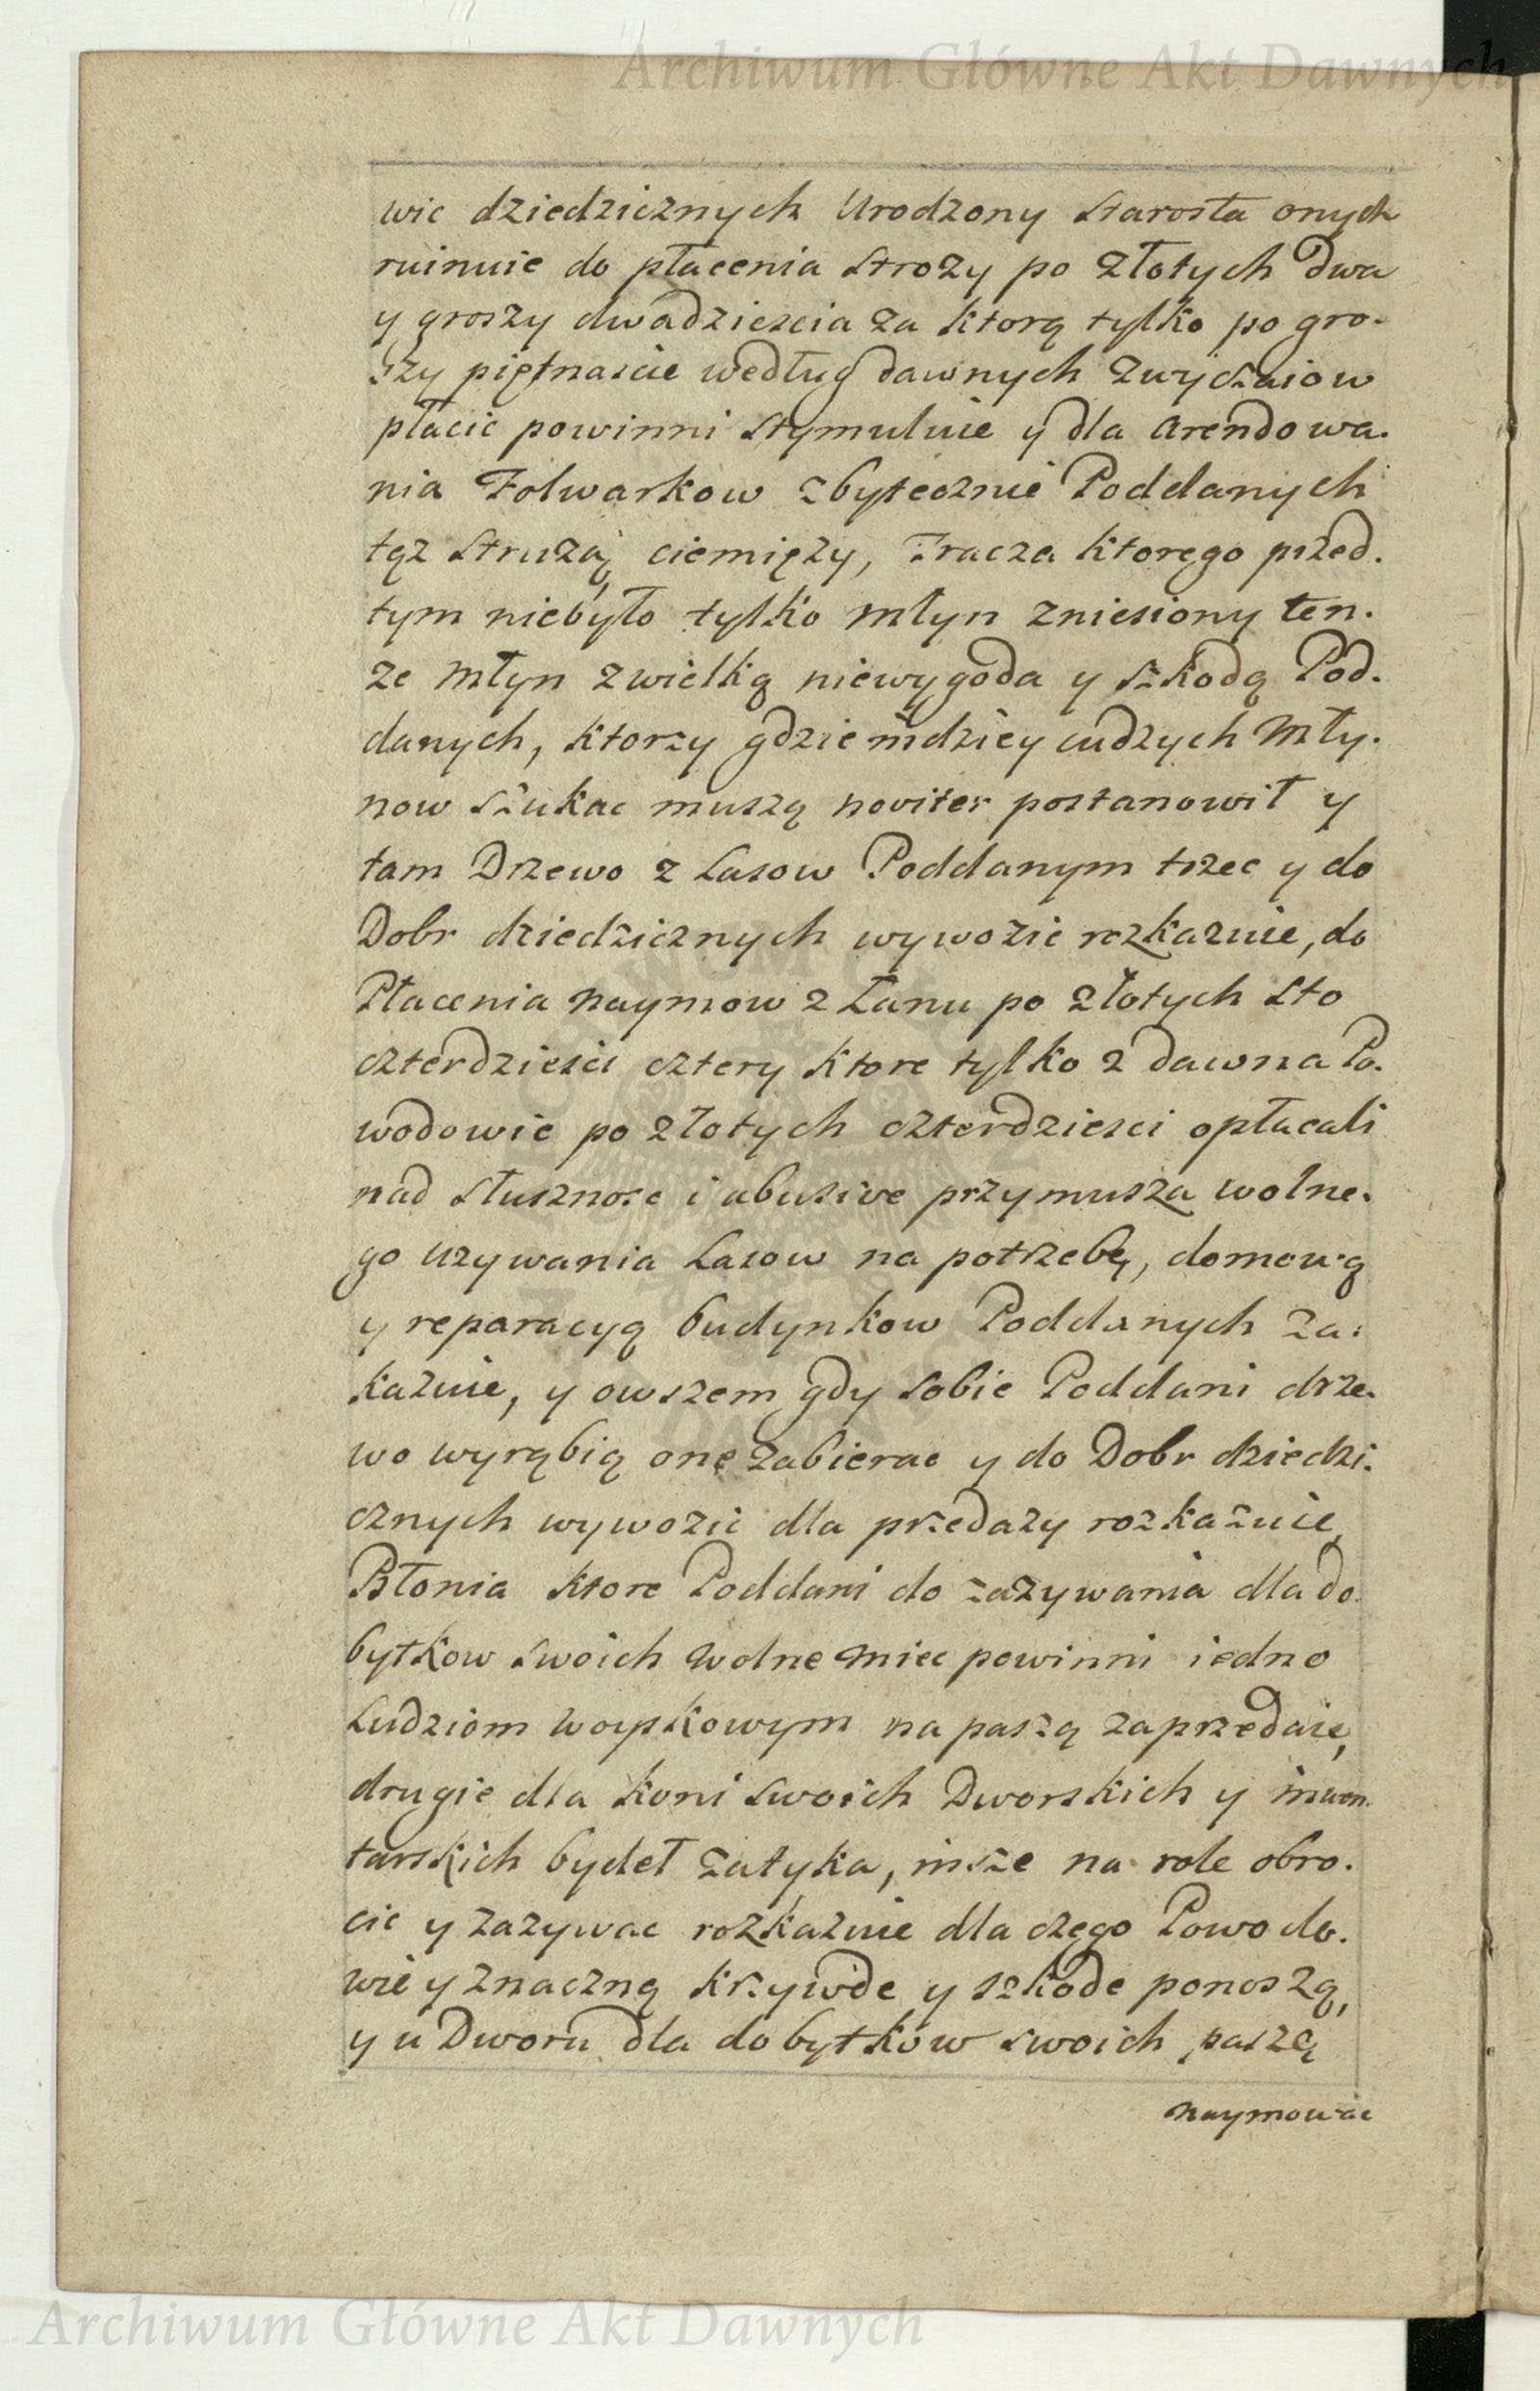 Archiwum Główne Akt Dawnych
wic dziedzicznych Urodzony Starosta onych
ruinuie do płacenia Strozy po Złotych Dwa
y groszy dwadziescia za ktorą tylko po gro-
szy piętnascie według dawnych zwyczaiow
płacic powinni stymuluie y dla arendowa-
nia Folwarkow zbytecznie Poddanych
tąz Struzą ciemięzy, Tracza ktorego przed-
tym niebyło tylko Młyn zniesiony ten-
ze Młyn z wielką niewygoda y szkodą Pod-
danych, ktorzy gdzie indziey cudzych Mły-
now szukac muszą noviter postanowił y
tam Drzewo z Lasow Poddanym trzec y do
Dobr dziedzicznych wywozic rozkazuie, do
Płacenia Naymow z Łanu po Złotych Sto
czterdziesci cztery ktore tylko z dawna Po-
wodowie po Złotych czterdziesci opłacali
nad słusznosc i abusive przymusza wolne-
go uzywania Lasow na potrzebę, domową
y reparacyą budynkow Poddanych za-
kazuie, y owszem gdy sobie Poddani drze-
wo wyrąbią onę zabierac y do Dobr dziedzi-
cznych wywozic dla przedazy rozkazuie,
Błonia ktore Poddani do zazywania dla do-
bytkow swoich wolne miec powinni iedno
Ludziom woyskowym na paszą zaprzedaie,
drugie dla koni swoich Dworskich y inwen-
tarskich bydeł zatyka, insze na role obro-
cic y zazywac rozkazuie dla czego Powodo-
wie y znaczną krzywde y szkode ponoszą,
y u Dworu dla dobytkow swoich paszą
naymowac
Archiwum Główne Akt Dawnych